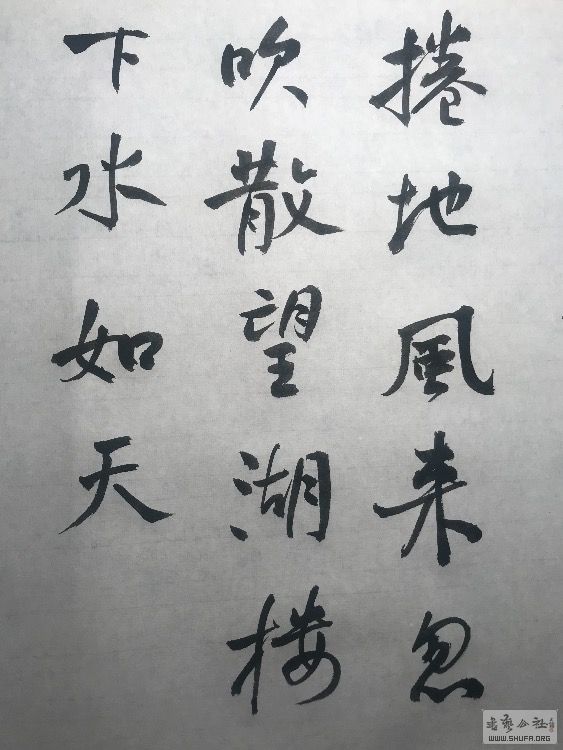 捲地風来忽
吹散望湖楼
下水如天
书艺公社
WWW.SHUFA.ORG